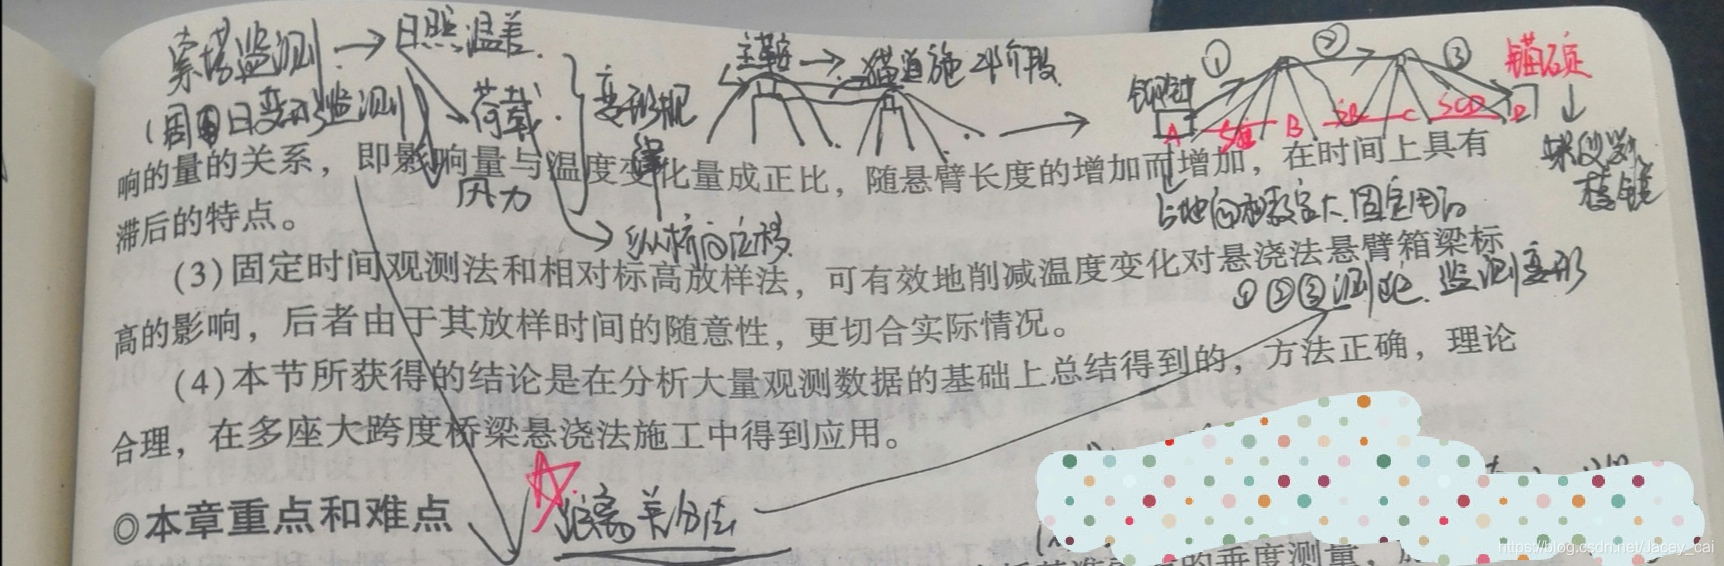 索塔监测 → 日照温差
(周日变形监测)
荷载
风力
变形规律
纵桥向位移
主鞍 → 猫道施工阶段
① ② ③
A B C D
锚碇
响的量的关系，即影响量与温度变化量成正比，随悬臂长度的增加而增加，在时间上具有
滞后的特点。
(3)固定时间观测法和相对标高放样法，可有效地削减温度变化对悬浇法悬臂箱梁标
①②③测距 监测变形
高的影响，后者由于其放样时间的随意性，更切合实际情况。
(4)本节所获得的结论是在分析大量观测数据的基础上总结得到的，方法正确，理论
合理，在多座大跨度桥梁悬浇法施工中得到应用。
◎本章重点和难点
距离差分法
的垂度测量，
https://blog.csdn.net/Jacey_cai